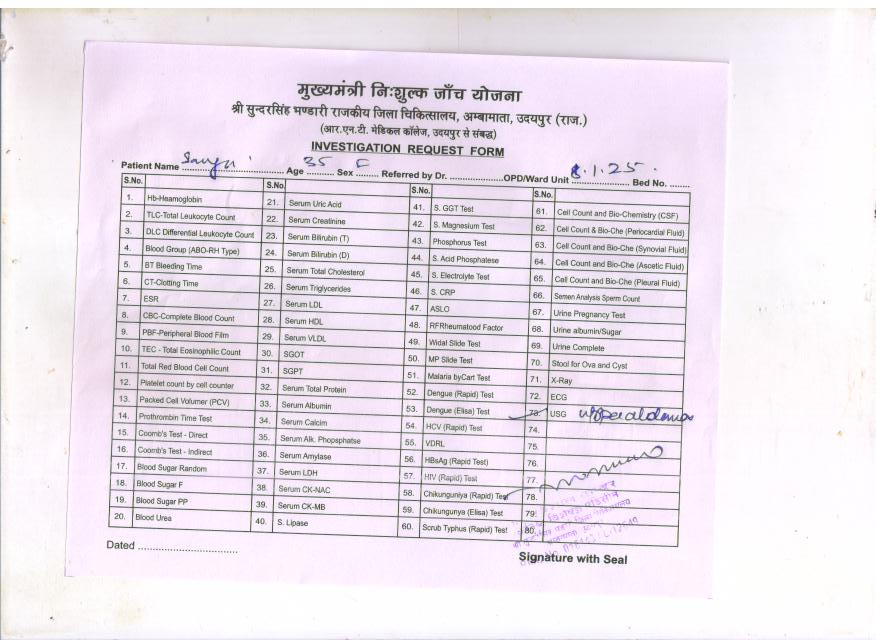 मुख्यमंत्री निःशुल्क जाँच योजना
श्री सुन्दरसिंह भण्डारी राजकीय जिला चिकित्सालय, अम्बामाता, उदयपुर (राज.)
(आर.एन.टी. मेडिकल कॉलेज, उदयपुर से संबद्ध)
INVESTIGATION REQUEST FORM
Patient Name .......... Age 35 Sex F Referred by Dr. .......... OPD/Ward Unit 8.1.25. Bed No. ........
S.No. S.No. S.No. S.No.
1. Hb-Heamoglobin 21. Serum Uric Acid 41. S. GGT Test 61. Cell Count and Bio-Chemistry (CSF)
2. TLC-Total Leukocyte Count 22. Serum Creatinine 42. S. Magnesium Test 62. Cell Count & Bio-Che (Periocardial Fluid)
3. DLC Differential Leukocyte Count 23. Serum Bilirubin (T) 43. Phosphorus Test 63. Cell Count and Bio-Che (Synovial Fluid)
4. Blood Group (ABO-RH Type) 24. Serum Bilirubin (D) 44. S. Acid Phosphatese 64. Cell Count and Bio-Che (Ascetic Fluid)
5. BT Bleeding Time 25. Serum Total Cholesterol 45. S. Electrolyte Test 65. Cell Count and Bio-Che (Pleural Fluid)
6. CT-Clotting Time 26. Serum Triglycerides 46. S. CRP 66. Semen Analysis Sperm Count
7. ESR 27. Serum LDL 47. ASLO 67. Urine Pregnancy Test
8. CBC-Complete Blood Count 28. Serum HDL 48. RFRheumatood Factor 68. Urine albumin/Sugar
9. PBF-Peripheral Blood Film 29. Serum VLDL 49. Widal Slide Test 69. Urine Complete
10. TEC - Total Eosinophilic Count 30. SGOT 50. MP Slide Test 70. Stool for Ova and Cyst
11. Total Red Blood Cell Count 31. SGPT 51. Malaria byCart Test 71. X-Ray
12. Platelet count by cell counter 32. Serum Total Protein 52. Dengue (Rapid) Test 72. ECG
13. Packed Cell Volumer (PCV) 33. Serum Albumin 53. Dengue (Elisa) Test 73. USG
14. Prothrombin Time Test 34. Serum Calcim 54. HCV (Rapid) Test 74.
15. Coomb's Test - Direct 35. Serum Alk. Phopsphatse 55. VDRL 75.
16. Coomb's Test - Indirect 36. Serum Amylase 56. HBsAg (Rapid Test) 76.
17. Blood Sugar Random 37. Serum LDH 57. HIV (Rapid) Test 77.
18. Blood Sugar F 38. Serum CK-NAC 58. Chikunguniya (Rapid) Test 78.
19. Blood Sugar PP 39. Serum CK-MB 59. Chikungunya (Elisa) Test 79.
20. Blood Urea 40. S. Lipase 60. Scrub Typhus (Rapid) Test 80.
Dated ..............................
Signature with Seal